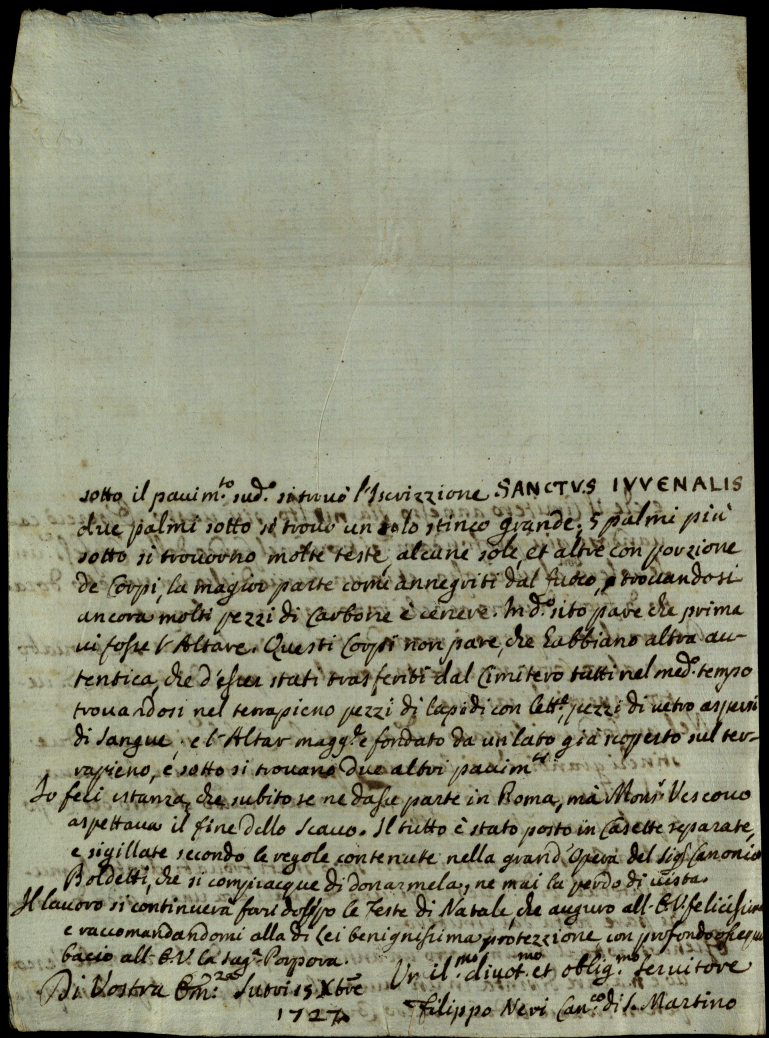 sotto il pavim.to sud.o si trovò l'Iscrizzione SANCTVS IVVENALIS
due palmi sotto si trovò un solo stinco grande; 5 palmi più
sotto si trovorno molte teste, alcune sole, et altre con porzione
de Corpi, la magior parte come annegriti dal fuoco, trovandosi
ancora molti pezzi di Carbone e cenere. In d.o sito pare che prima
vi fosse l'Altare. Questi Corpi non pare, che habbiano altra au-
tentica, che d'esser stati trasferiti dal Cimitero tutti nel med.o tempo
trovandosi nel terrapieno pezzi di lapidi con lett.e, pezzi di vetro aspersi
di Sangue, e l'Altar magg.e fondato da un lato già scoperto sul ter-
rapieno, e sotto si trovano due altri pavim.ti
Io feci istanza, che subito se ne dasse parte in Roma, ma Mons.r Vescovo
aspettava il fine dello Scavo. Il tutto è stato posto in Casette separate,
e sigillate secondo le regole contenute nella grand'Opera del Sig.r Canonico
Boldetti, che si compiacque di donarmela, ne mai la perdo di vista.
Il lavoro si continuerà farsi doppo le Feste di Natale, che auguro all'E.V. felicissime
e raccomandandomi alla di Lei benignissima protezzione con profondo ossequio
bacio all'E.V. la sag.a Porpora.
Di Vostra Em.za Sutri 15 Xbre
1727
Um.mo divot.mo et oblig.mo Servitore
Filippo Neri Can.co di S. Martino